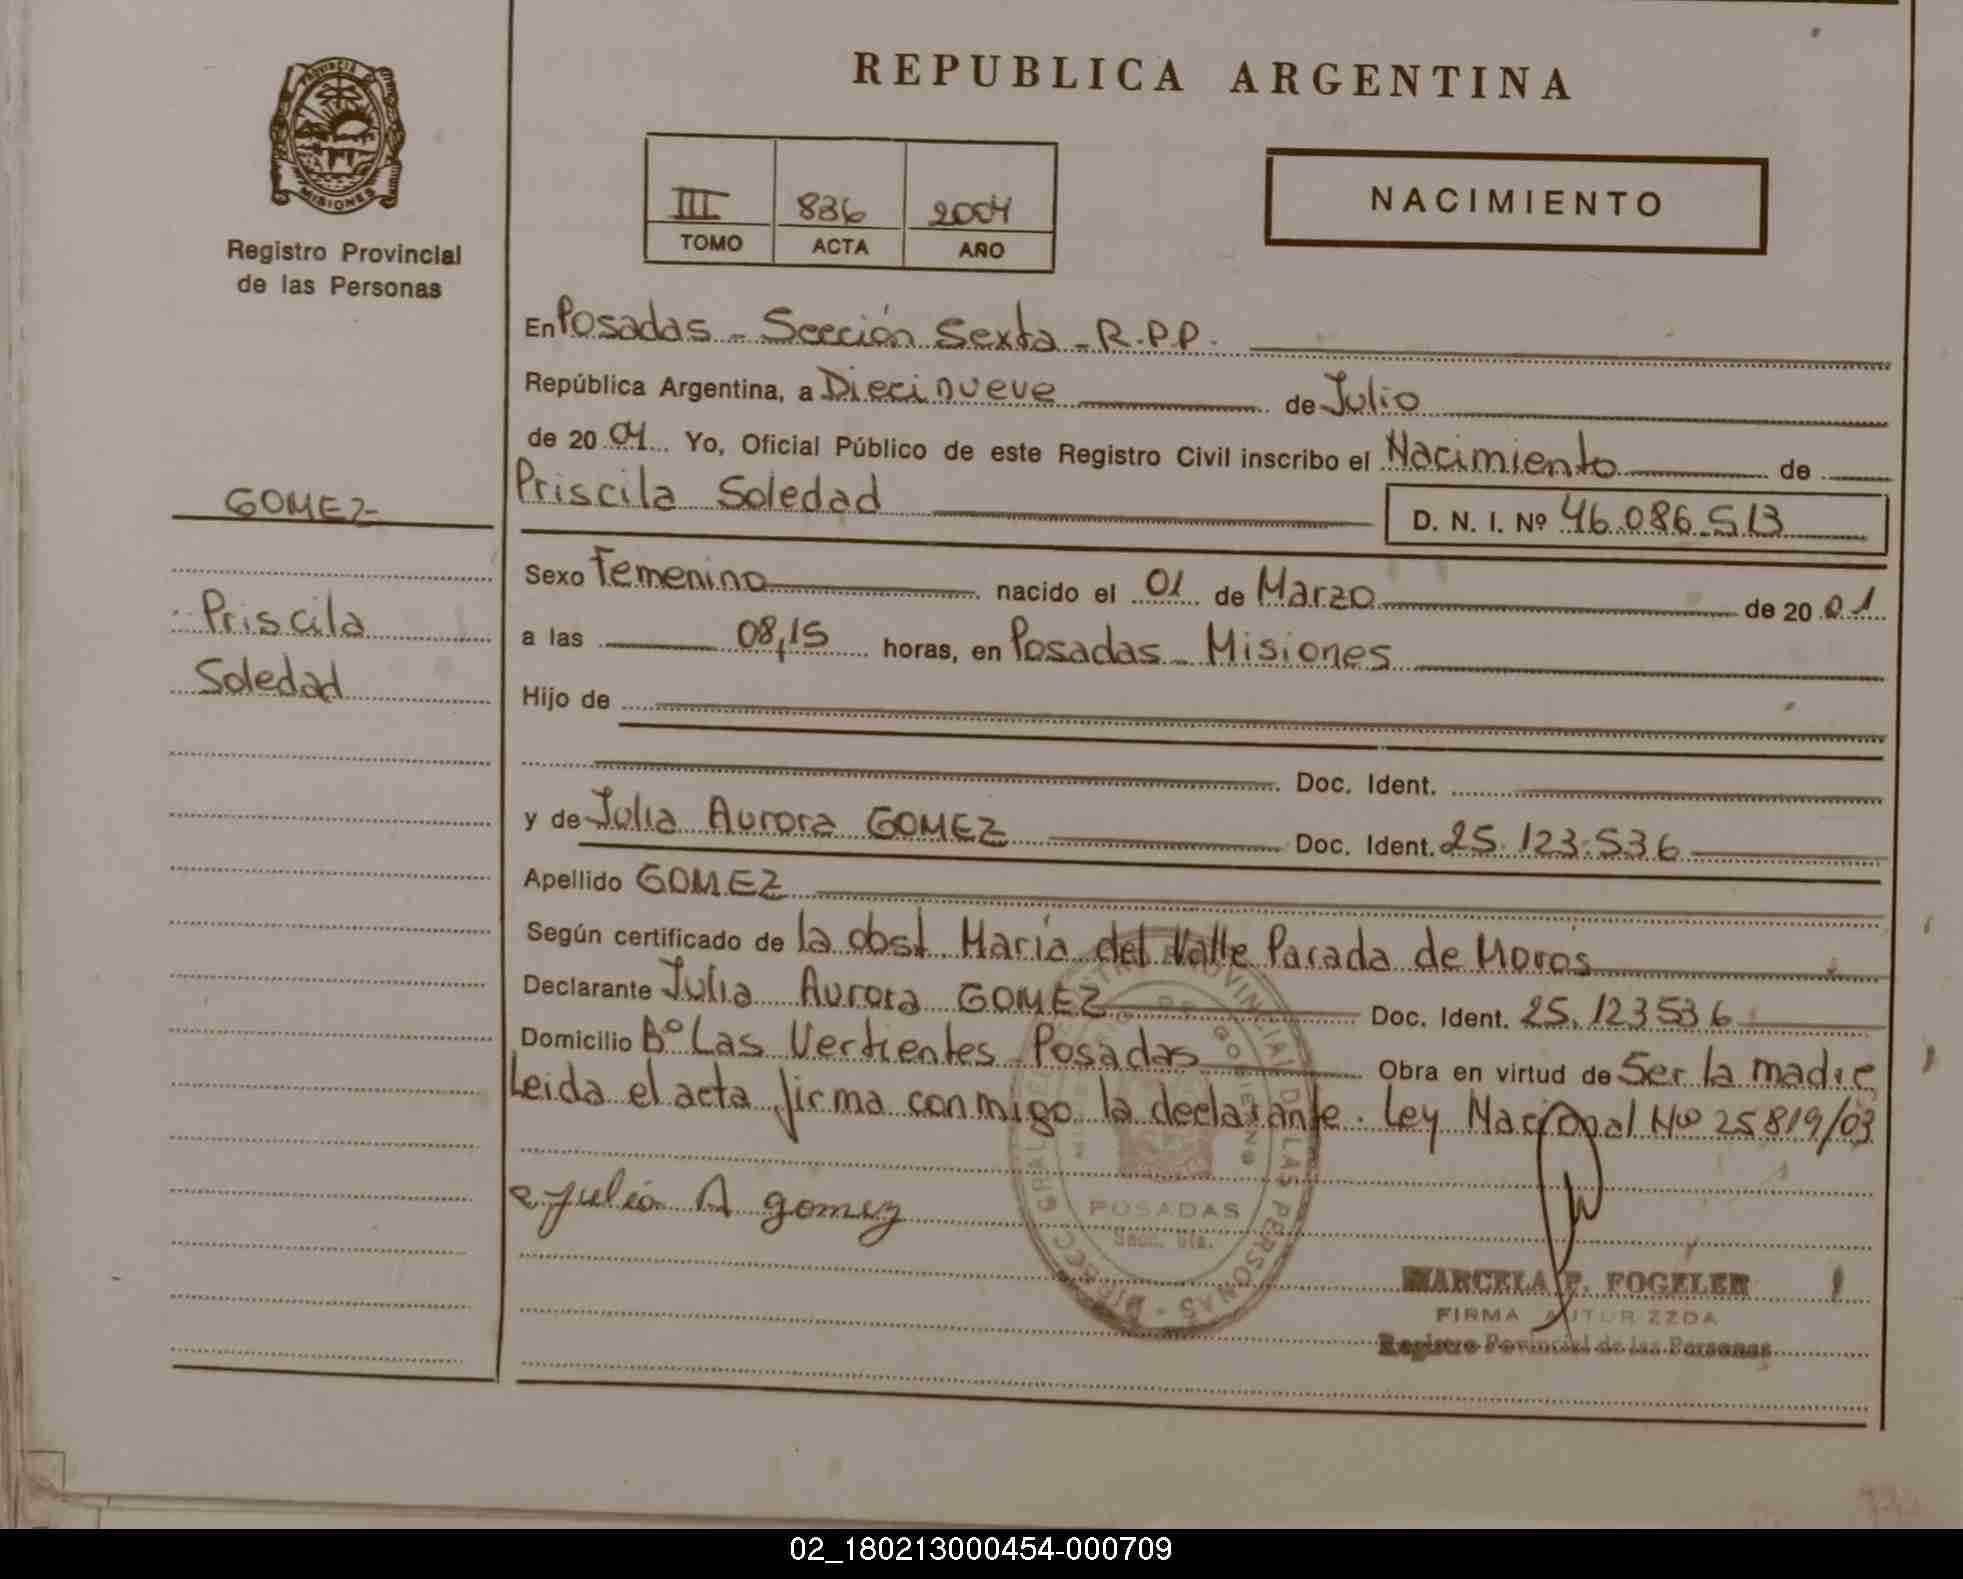 PROVINCIA
MISIONES
Registro Provincial
de las Personas
REPUBLICA ARGENTINA
III 836 2004
TOMO ACTA AÑO
NACIMIENTO
En Posadas - Sección Sexta - R.P.P.
República Argentina, a Diecinueve de Julio
de 20 04 Yo, Oficial Público de este Registro Civil inscribo el Nacimiento de
Priscila Soledad D. N. I. Nº 46.086.513
GOMEZ
Priscila
Soledad
Sexo Femenino nacido el 01 de Marzo de 20 01
a las 08,15 horas, en Posadas - Misiones
Hijo de
Doc. Ident.
y de Julia Aurora GOMEZ Doc. Ident. 25.123.536
Apellido GOMEZ
Según certificado de la obst. María del Valle Parada de
Declarante Julia Aurora GOMEZ Doc. Ident. 25.123536
Domicilio Bº Las Vertientes - Posadas Obra en virtud de Ser la madre
Leida el acta firma conmigo la declarante. Ley Nacional Nº 25819/03
Julia A gomez
POSADAS
MARCELA F. FOGELER
FIRMA
Registro Provincial de las Personas
02_180213000454-000709